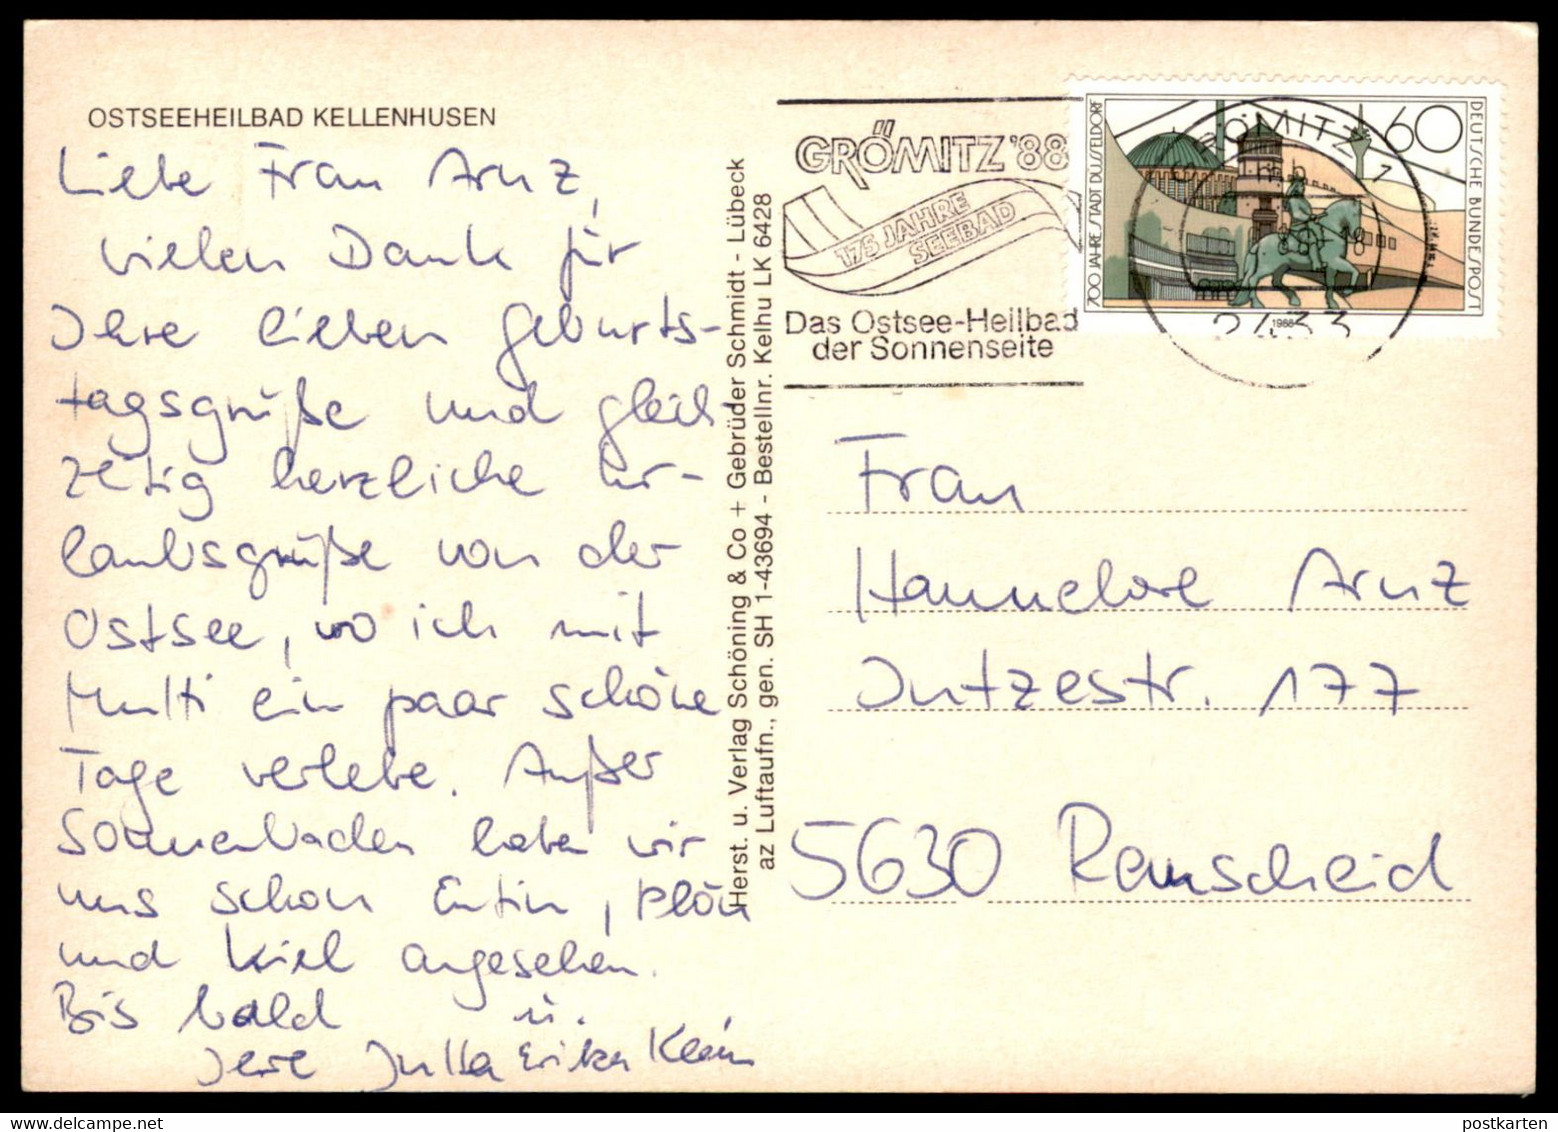 OSTSEEHEILBAD KELLENHUSEN
Liebe Frau Arnz,
vielen Dank für
Ihre lieben Geburts-
tagsgrüße und gleich-
zeitig herzliche Ur-
laubsgrüße von der
Ostsee, wo ich mit
Mutti ein paar schöne
Tage verlebe. Außer
Sonnenbaden haben wir
uns schon Eutin, Plön
und Kiel angesehen.
Bis bald u.
Ihre Jutta Erika Klein
Herst. u. Verlag Schöning & Co + Gebrüder Schmidt - Lübeck
az Luftaufn., gen. SH 1-43694 - Bestellnr. Kelhu LK 6428
GRÖMITZ '88
175 JAHRE
SEEBAD
Das Ostsee-Heilbad
der Sonnenseite
700 JAHRE STADT DÜSSELDORF
60
DEUTSCHE BUNDESPOST
1988
GRÖMITZ 1
2433
Frau
Hannelore Arnz
Intzestr. 177
5630 Remscheid
postkarten